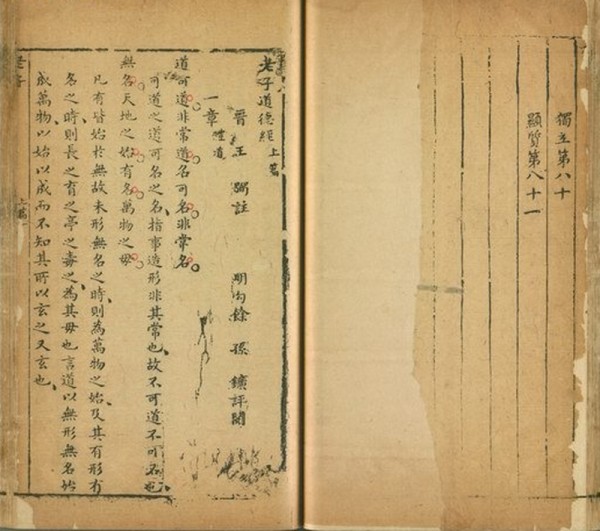 獨立第八十
顯質第八十一
老子道德經 上篇
晉 王 弼註 明勾餘 孫 鑛評閱
一章 體道
道可道非常道名可名非常名
可道之道可名之名指事造形非其常也故不可道不可名也
無名天地之始有名萬物之母
凡有皆始於無故未形無名之時則為萬物之始及其有形有
名之時則長之育之亭之毒之為其母也言道以無形無名始
成萬物以始以成而不知其所以玄之又玄也
老子
上篇